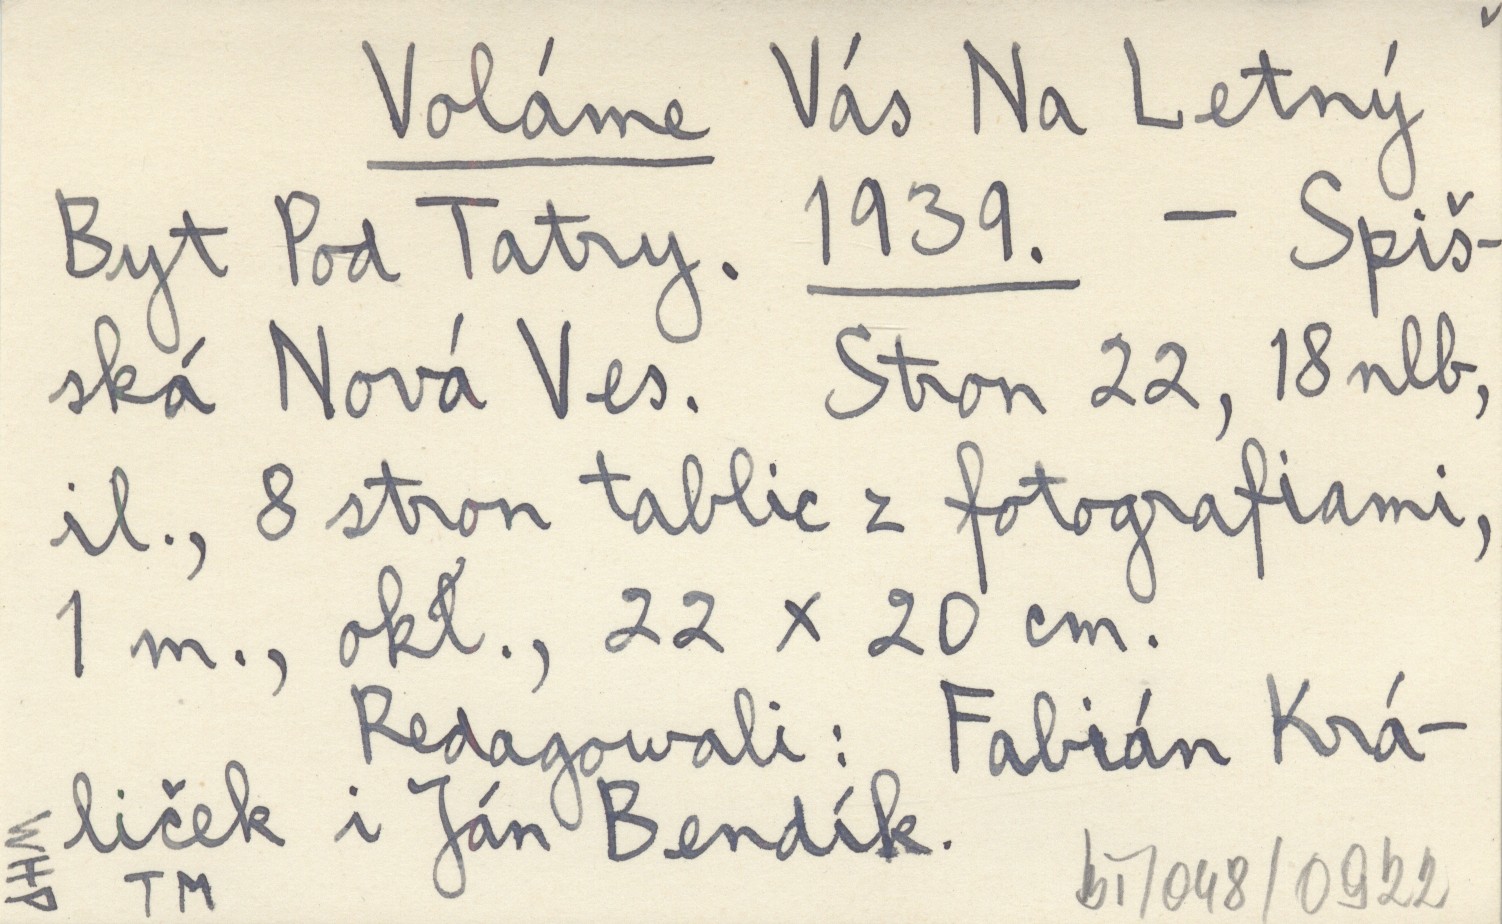 Voláme Vás Na Letný
Byt Pod Tatry. 1939. – Spiš-
ská Nová Ves. Stron 22, 18 nlb,
il., 8 stron tablic z fotografiami,
1 m., okł., 22 x 20 cm.
Redagowali: Fabián Krá-
liček i Ján Bendík.
WHP
TM
bT/048/0922